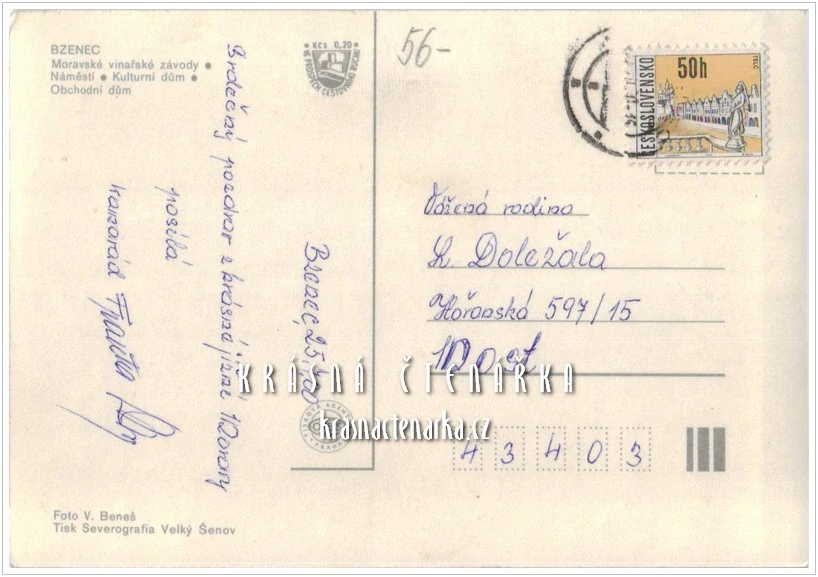 BZENEC
Moravské vinařské závody •
Náměstí • Kulturní dům •
Obchodní dům
Kčs 0,20
56-
50h
ČESKOSLOVENSKO
TELČ
Srdečný pozdrav z krásné jižní Moravy
posílá
kamarád
Bzenec, 25.
Vážená rodina
L. Doležala
Hořanská 597/15
Most
43403
KRÁSNÁ ČTENÁŘKA
krasnactenarka.cz
Foto V. Beneš
Tisk Severografia Velký Šenov